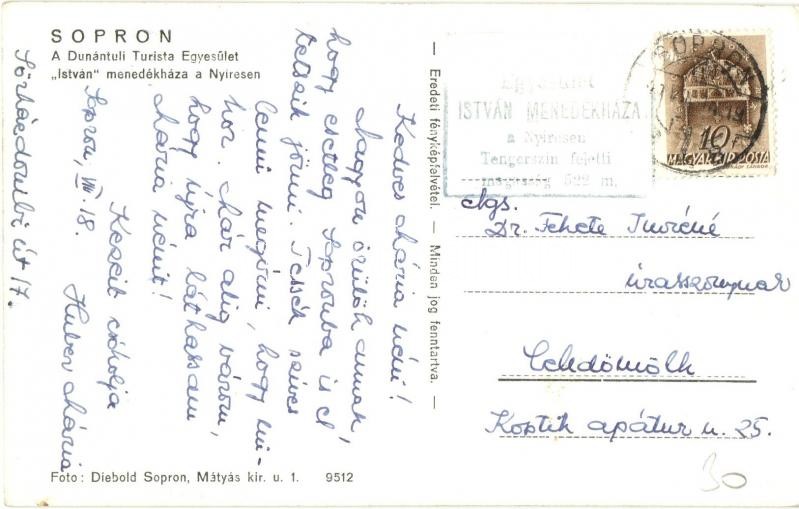 SOPRON
A Dunántuli Turista Egyesület
„István" menedékháza a Nyiresen
Kedves Mária néni!
Nagyon örülök annak,
hogy esetleg Sopronba is el
tetszik jönni. Tessék szíves
lenni megírni, hogy mi-
kor. Már alig várom,
hogy újra láthassam
Mária nénit!
Kezeit csókolja
Huber Mária
Sopron, VIII. 18.
Sörházdombi út 17.
Foto: Diebold Sopron, Mátyás kir. u. 1. 9512
— Eredeti fényképfelvétel. — Minden jog fenntartva. —
Egyesület
ISTVÁN MENEDÉKHÁZA
a Nyiresen
Tengerszin feletti
magasság 522 m.
SOPRON
10 f
MAGYAR KIR. POSTA
Dr. Fekete Imréné
úrasszonynak
Celldömölk
Koptik apátur u. 25.
30